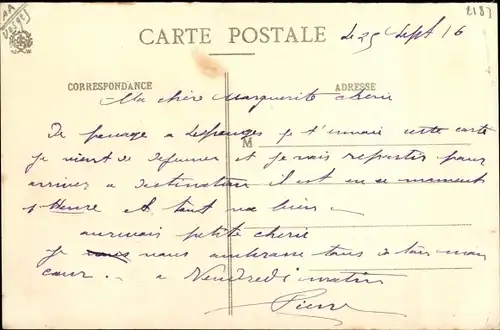 2187
CARTE POSTALE
le 29 Sept 16
CORRESPONDANCE
ADRESSE
Ma chère Marguerite cherie
De passage a je t'envoie cette carte
M
je vient de dejeuner et je vais repartir pour
arriver a destination il est en se moment
1 Heure et tout va bien
aurevoir petite cherie
je vous embrasse tous de tout mon
cœur. a Vendredi matin
Pierre